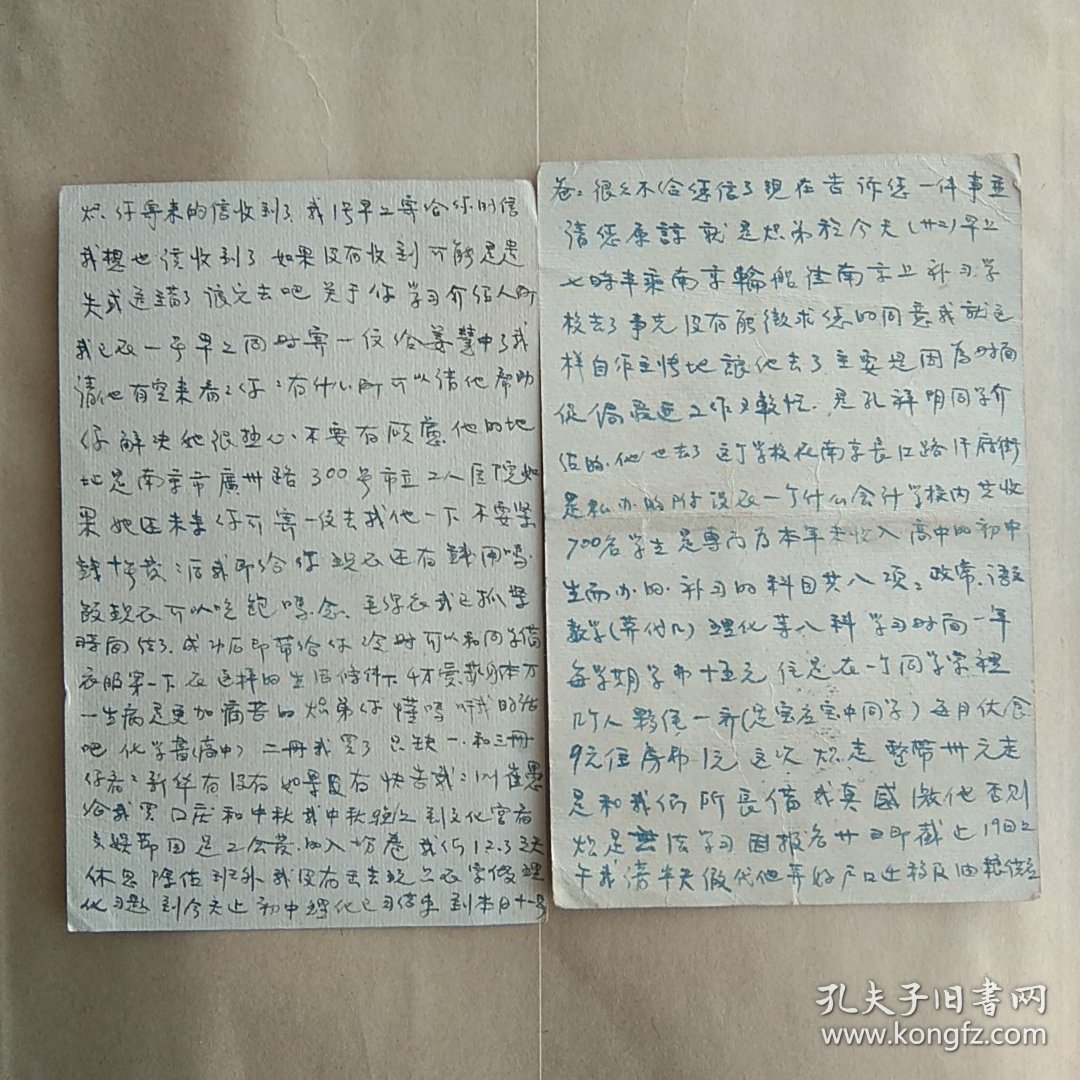 你寄来的信收到了我1号早上寄给你的信
我想也该收到了如果没有收到可能是遗
失或送错了 关于你学习介绍人
我已在一号早上同时寄一信给 我
请他有空来看看你有什么 可以请他帮助
你解决她很热心不要有顾虑他的地
址是南京市廣州路300号市立工人医院如
果她还未来你可寄一信去找他一下不要紧
钱十号发 后我即给你现在还有錢用吗
饭现在可以吃飽吗念 毛线衣我已抓紧
時间结了成功后即带给你冷时可以和同学借
衣服穿一下在这样的生活条件下
一生病是更加痛苦的 弟你懂吗听我的话
吧化学書(高中)二冊我买了只缺一和三冊
你看看新华有没有如果有快告我
给我 国庆和中秋我中秋晚上到文化宫看
文娱节目是工会发的入场卷我们1.2.3三天
休息除值班外我没有出去玩只在家做理
化习题到今天止初中理化已习结束到本月十一号
很久不给您信了現在告诉您一件事並
請您原諒就是 弟於今天(廿二)早上
七時半乘南京輪船往南京上补习学
校去了事先没有能徵求您的同意我就这
样自作主 地讓他去了主要是因為时间
促侷 工作又較忙是孔祥明同学介
绍的他也去了这个学校在南京長江路 府街
是私办的附设在一个什么会计学校内共收
700名学生是專门为本年未收入高中的初中
生而办的补习的科目共八项：政常、语文
数学(算代几)理化等八科学习时间一年
每学期学费十五元住是在一个同学家裡
几个人夥住一齐 每月伙食
9元住房费1元这次 走 带卅元走
是和我们所長借我真感激他否则
是無法学习因报名廿日即截止19日上
午我请半天假代他弄好户口迁移及油粮
孔夫子旧書网
www.kongfz.com